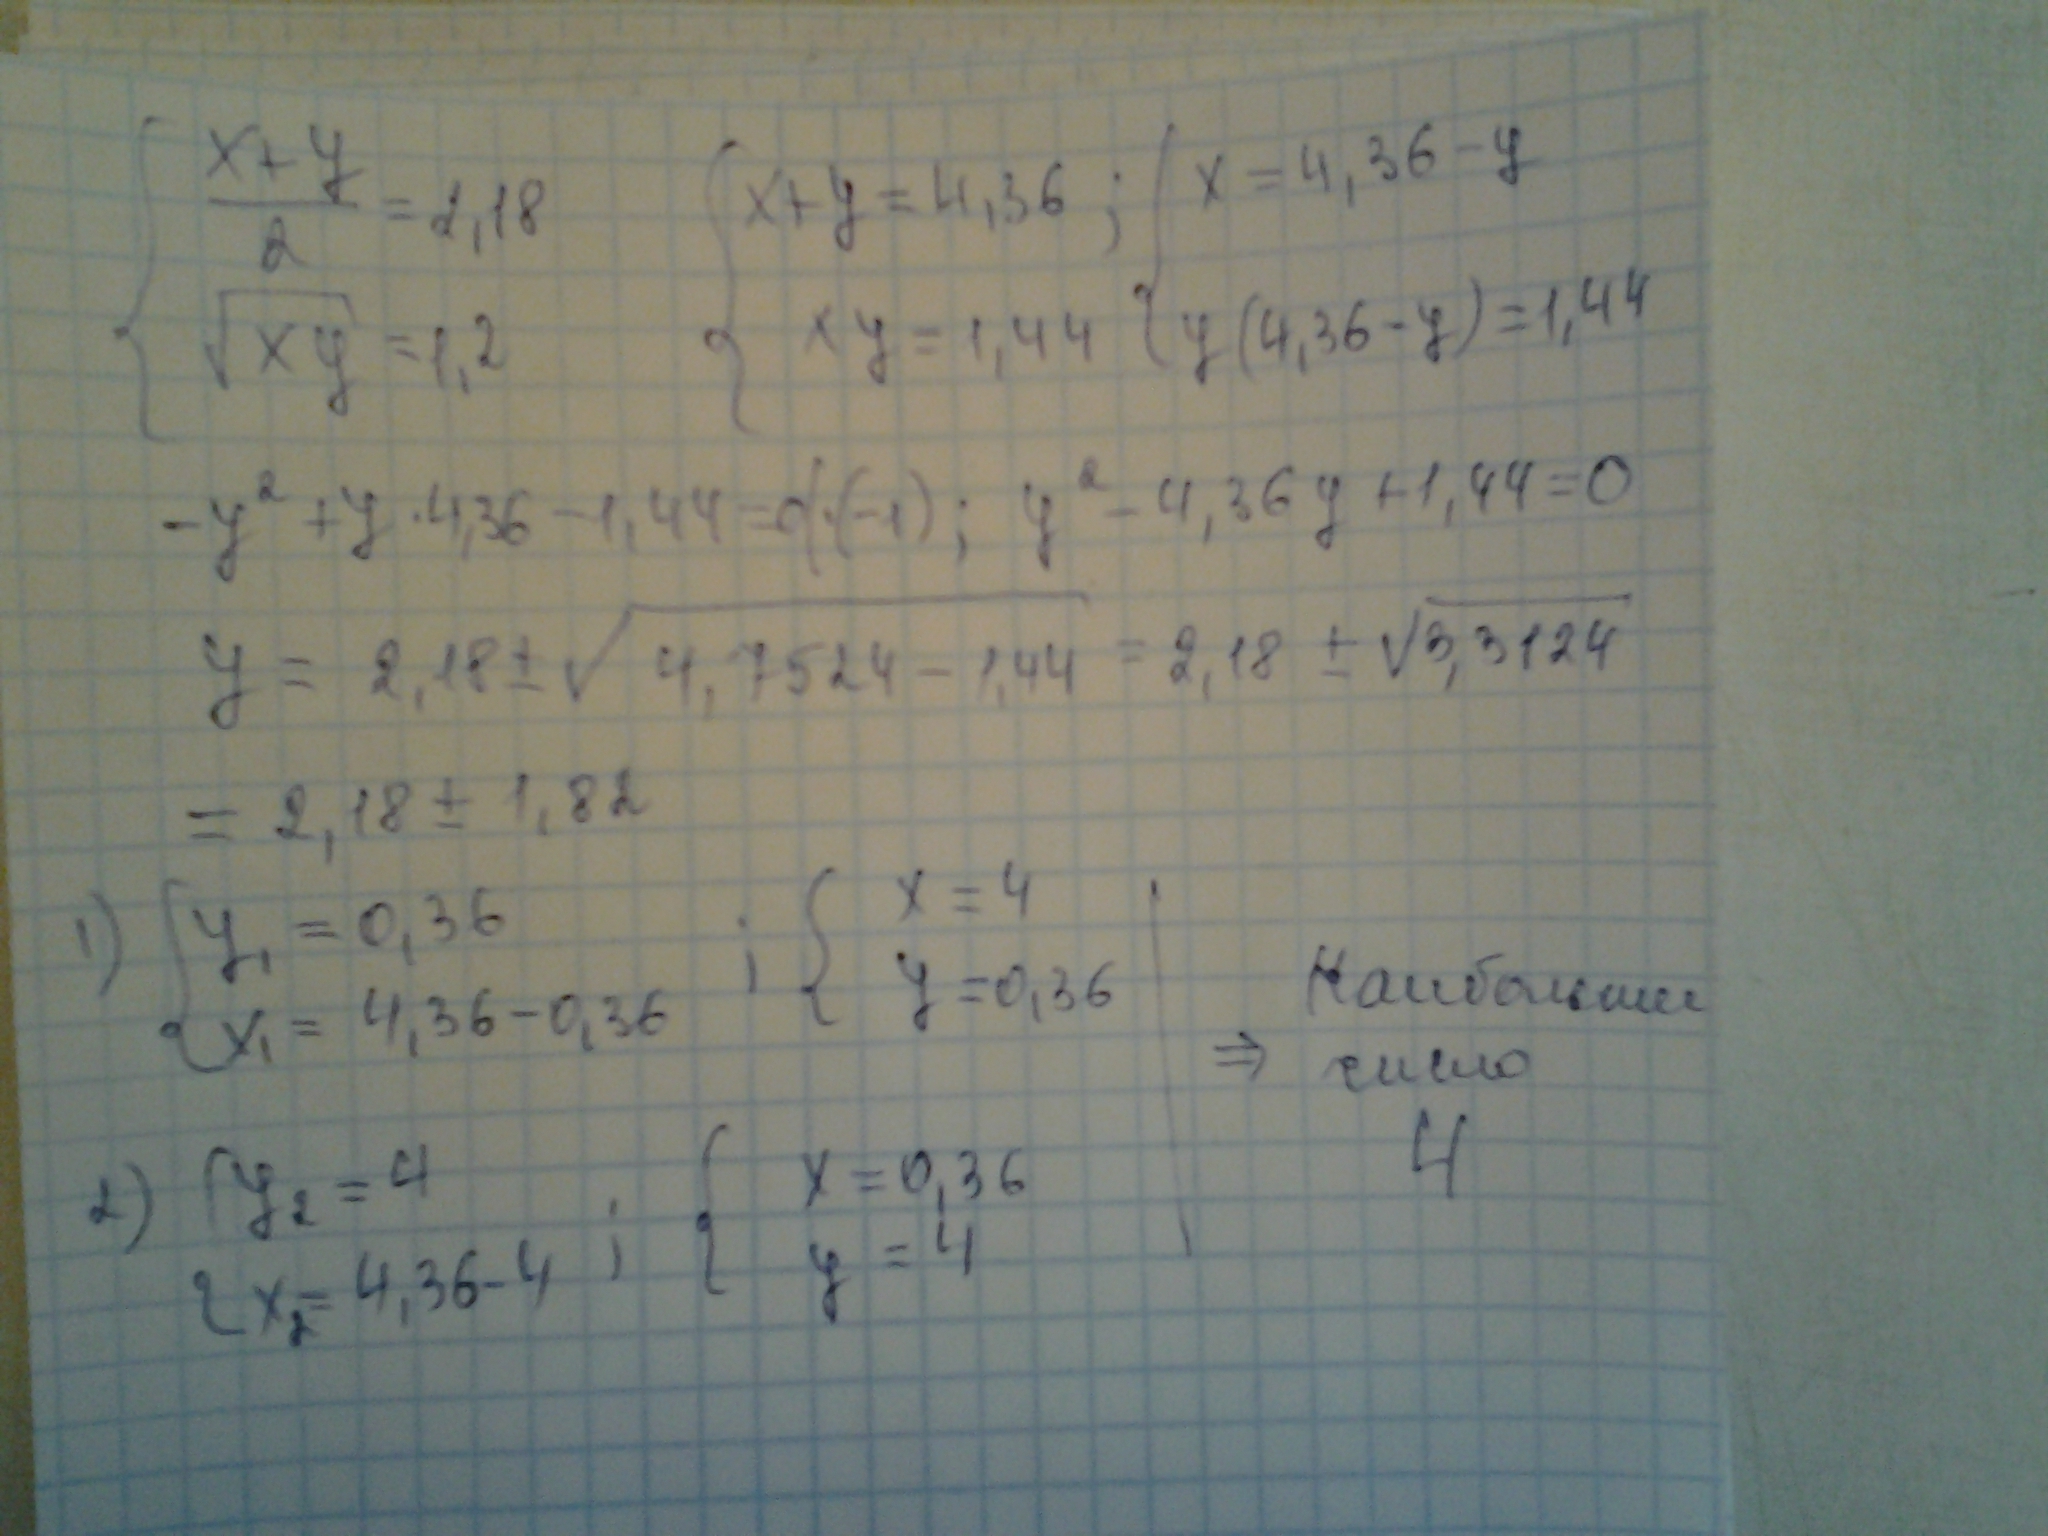 { (x+y)/2 = 2,18   { x+y = 4,36 ; { x = 4,36 - y
√(xy) = 1,2   xy = 1,44   y(4,36-y) = 1,44
-y² + y·4,36 - 1,44 = 0 |·(-1) ; y² - 4,36y + 1,44 = 0
y = 2,18 ± √(4,7524 - 1,44) = 2,18 ± √3,3124
= 2,18 ± 1,82
1) { y₁ = 0,36 ; { x = 4
x₁ = 4,36 - 0,36   y = 0,36
⇒ Наибольшее
число
4
2) { y₂ = 4 ; { x = 0,36
x₂ = 4,36 - 4   y = 4